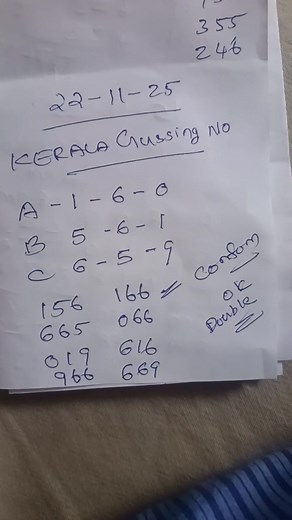 355
246
22-11-25
KERALA Gussing No
A - 1 - 6 - 0
B 5 - 6 - 1
C 6 - 5 - 9
156 166 ✓ Confom
665 066 OK
019 616 Double
966 669